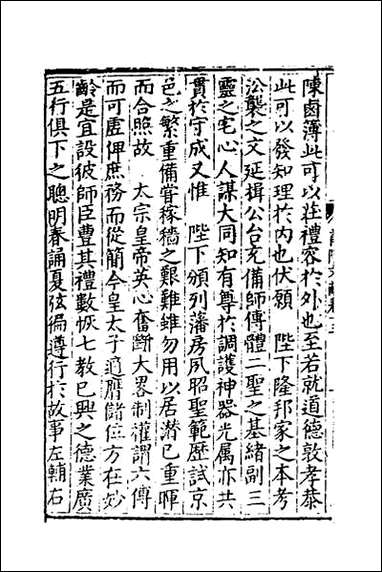 陳鹵簿此可以莊禮容於外也至若就道德敦孝恭
此可以發知理於內也伏願　陛下隆邦家之本考
㳂襲之文延揖公台充備師傅體二聖之基緒副三
靈之宅心人謀大同知有尊於調護神器光属亦共
貫於守成又惟　陛下頒列藩房夙昭聖範歴試京
邑之繁重備嘗稼穡之艱難雖勿用以居潜已重暉
而合照故　太宗皇帝英心奮斷大畧制權謂六傅
而可虚俾庶務而從簡今皇太子適膺儲位方在妙
齡是宜設彼師臣豊其禮數恢七教已興之德業廣
五行俱下之聰明春誦夏弦徧遵行於故事左輔右